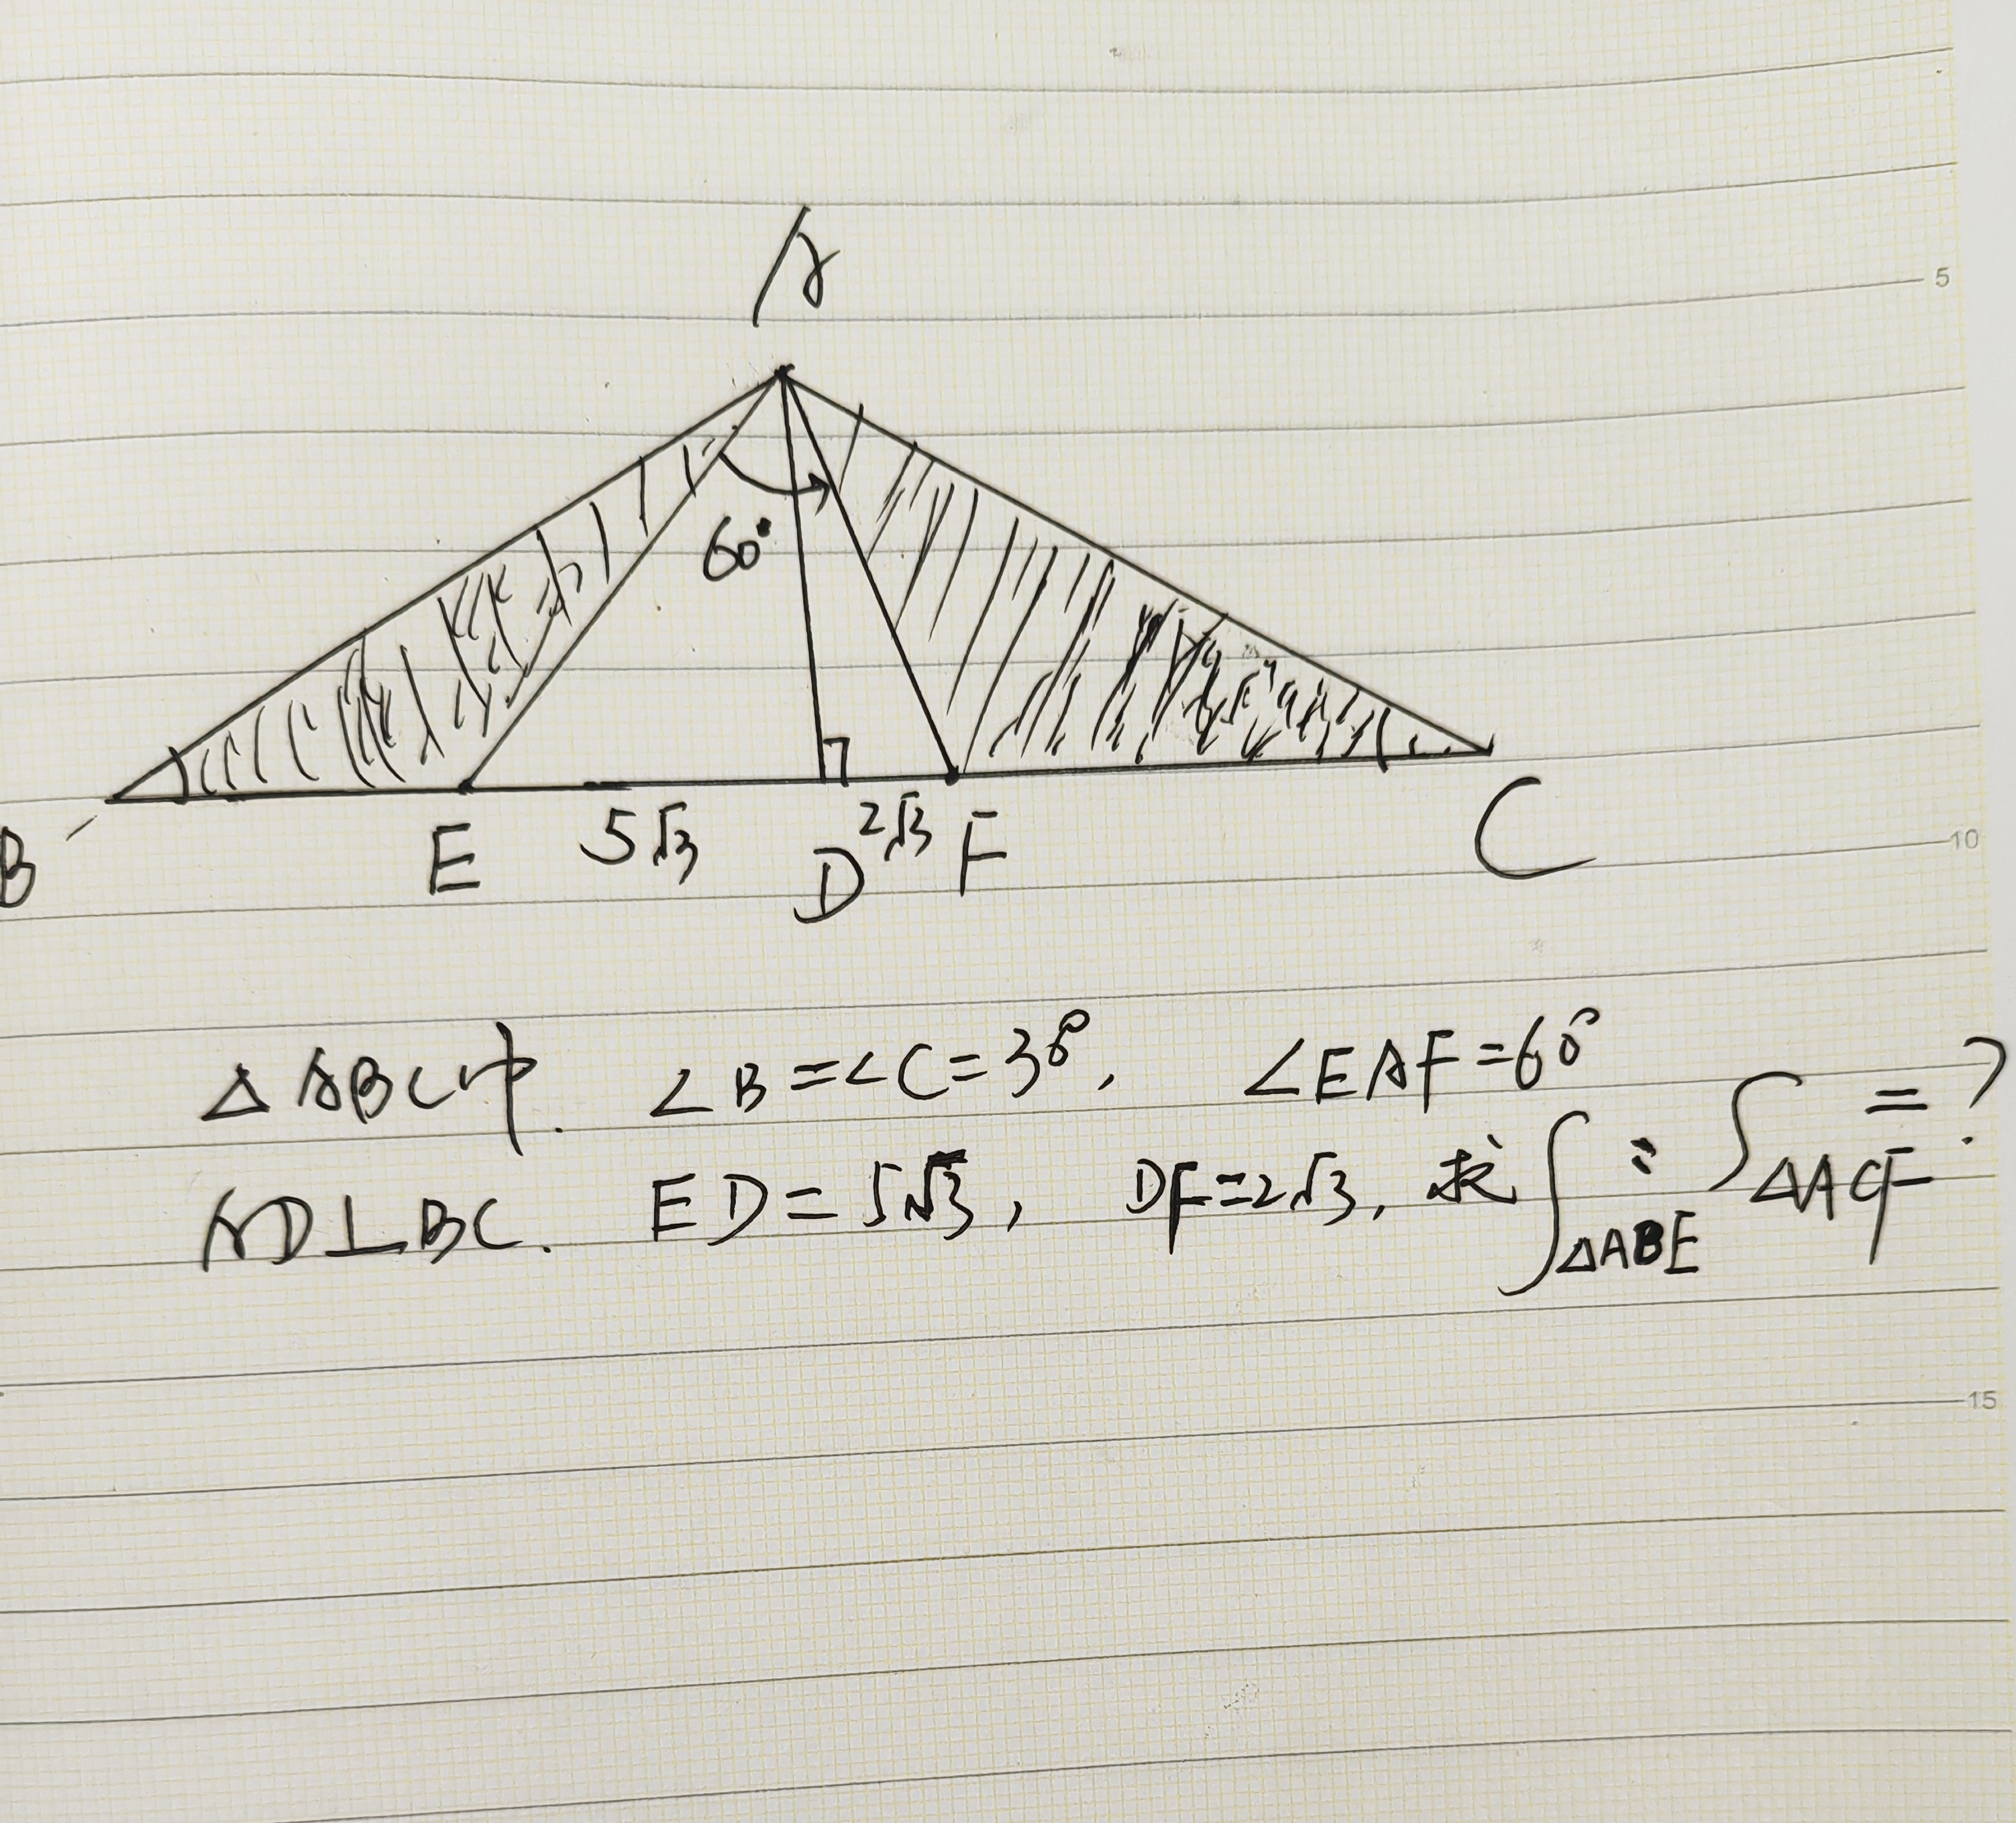 A
60°
B
E
5√3
D
2√3
F
C
△ABC中. ∠B=∠C=30°, ∠EAF=60°
AD⊥BC. ED=5√3, DF=2√3, 求S△ABE : S△ACF=?
5
10
15